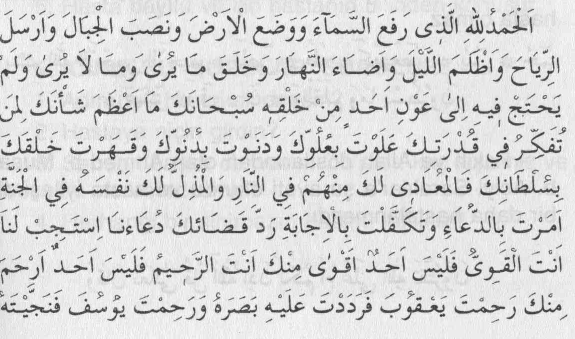 اَلْحَمْدُلِلّٰهِ الَّذِى رَفَعَ السَّمَآءَ وَوَضَعَ الْاَرْضَ وَنَصَبَ الْجِبَالَ وَاَرْسَلَ
الرِّيَاحَ وَاَظْلَمَ اللَّيْلَ وَاَضَاءَ النَّهَارَ وَخَلَقَ مَا يُرٰى وَمَا لَا يُرٰى وَلَمْ
يَحْتَجْ فِيهِ اِلٰى عَوْنِ اَحَدٍ مِنْ خَلْقِهِ سُبْحَانَكَ مَا اَعْظَمَ شَأْنَكَ لِمَنْ
تَفَكَّرَ فِي قُدْرَتِكَ عَلَوْتَ بِعُلُوِّكَ وَدَنَوْتَ بِدُنُوِّكَ وَقَهَرْتَ خَلْقَكَ
بِسُلْطَانِكَ فَالْمُعَادِى لَكَ مِنْهُمْ فِي النَّارِ وَالْمُذِلُّ لَكَ نَفْسَهُ فِي الْجَنَّةِ
اَمَرْتَ بِالدُّعَاءِ وَتَكَفَّلْتَ بِالْاِجَابَةِ رَدَّ قَضَائَكَ دُعَاءنَا اِسْتَجِبْ لَنَا
اَنْتَ الْقَوِىُّ فَلَيْسَ اَحَدٌ اَقْوٰى مِنْكَ اَنْتَ الرَّحِيمُ فَلَيْسَ اَحَدٌ اَرْحَمَ
مِنْكَ رَحِمْتَ يَعْقُوبَ فَرَدَدْتَ عَلَيْهِ بَصَرَهُ وَرَحِمْتَ يُوسُفَ فَنَجَّيْتَهُ